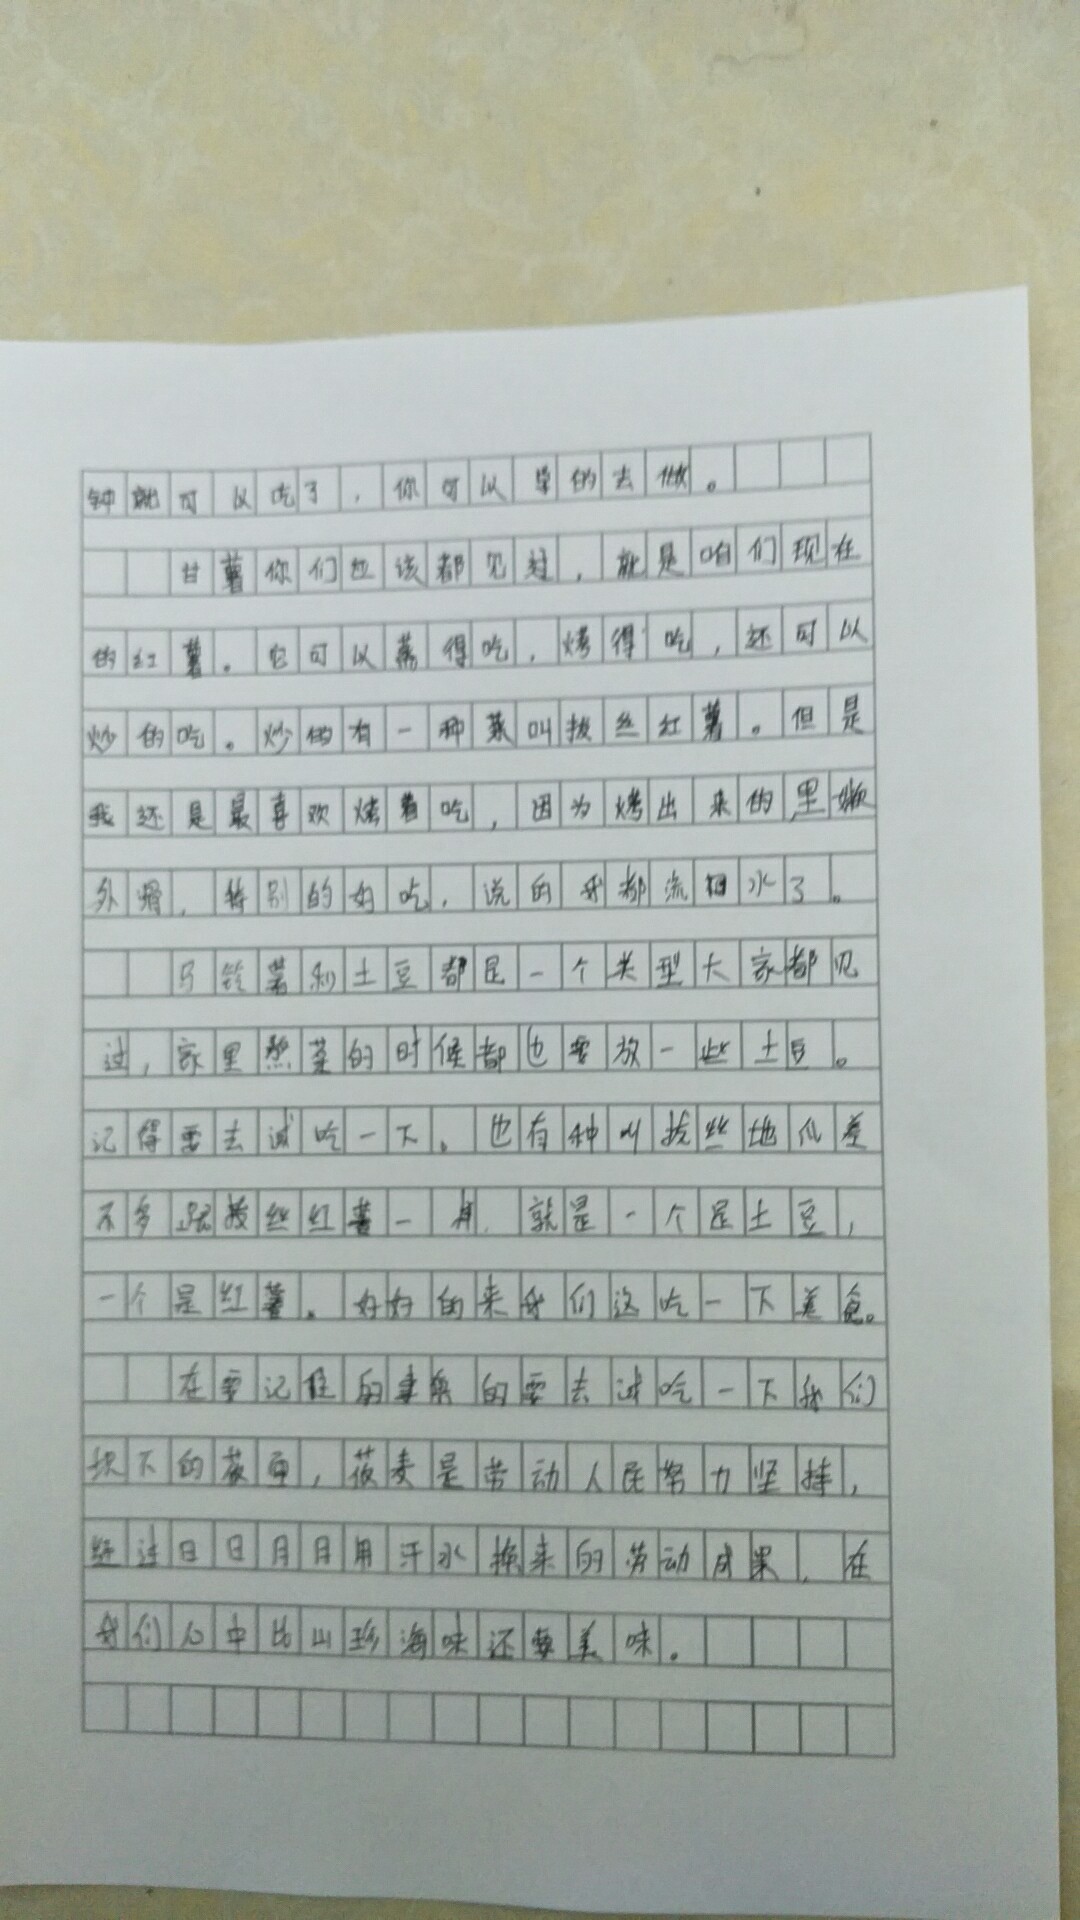 钟就可以吃了，你可以学的去做。
甘薯你们应该都见过，就是咱们现在
的红薯。它可以蒸得吃，烤得吃，还可以
炒的吃。炒的有一种菜叫拔丝红薯。但是
我还是最喜欢烤着吃，因为烤出来的里嫩
外滑，特别的好吃，说的我都流口水了。
马铃薯和土豆都是一个类型大家都见
过，家里熬菜的时候都也要放一些土豆。
记得要去试吃一下。也有种叫拔丝地仙差
不多跟拔丝红薯一样，就是一个是土豆，
一个是红薯。好好的来我们这吃一下美食。
在要记住的的要去试吃一下我们
坝下的莜面，莜麦是劳动人民努力坚持，
经过日日月月用汗水换来的劳动成果，在
我们心中比山珍海味还要美味。